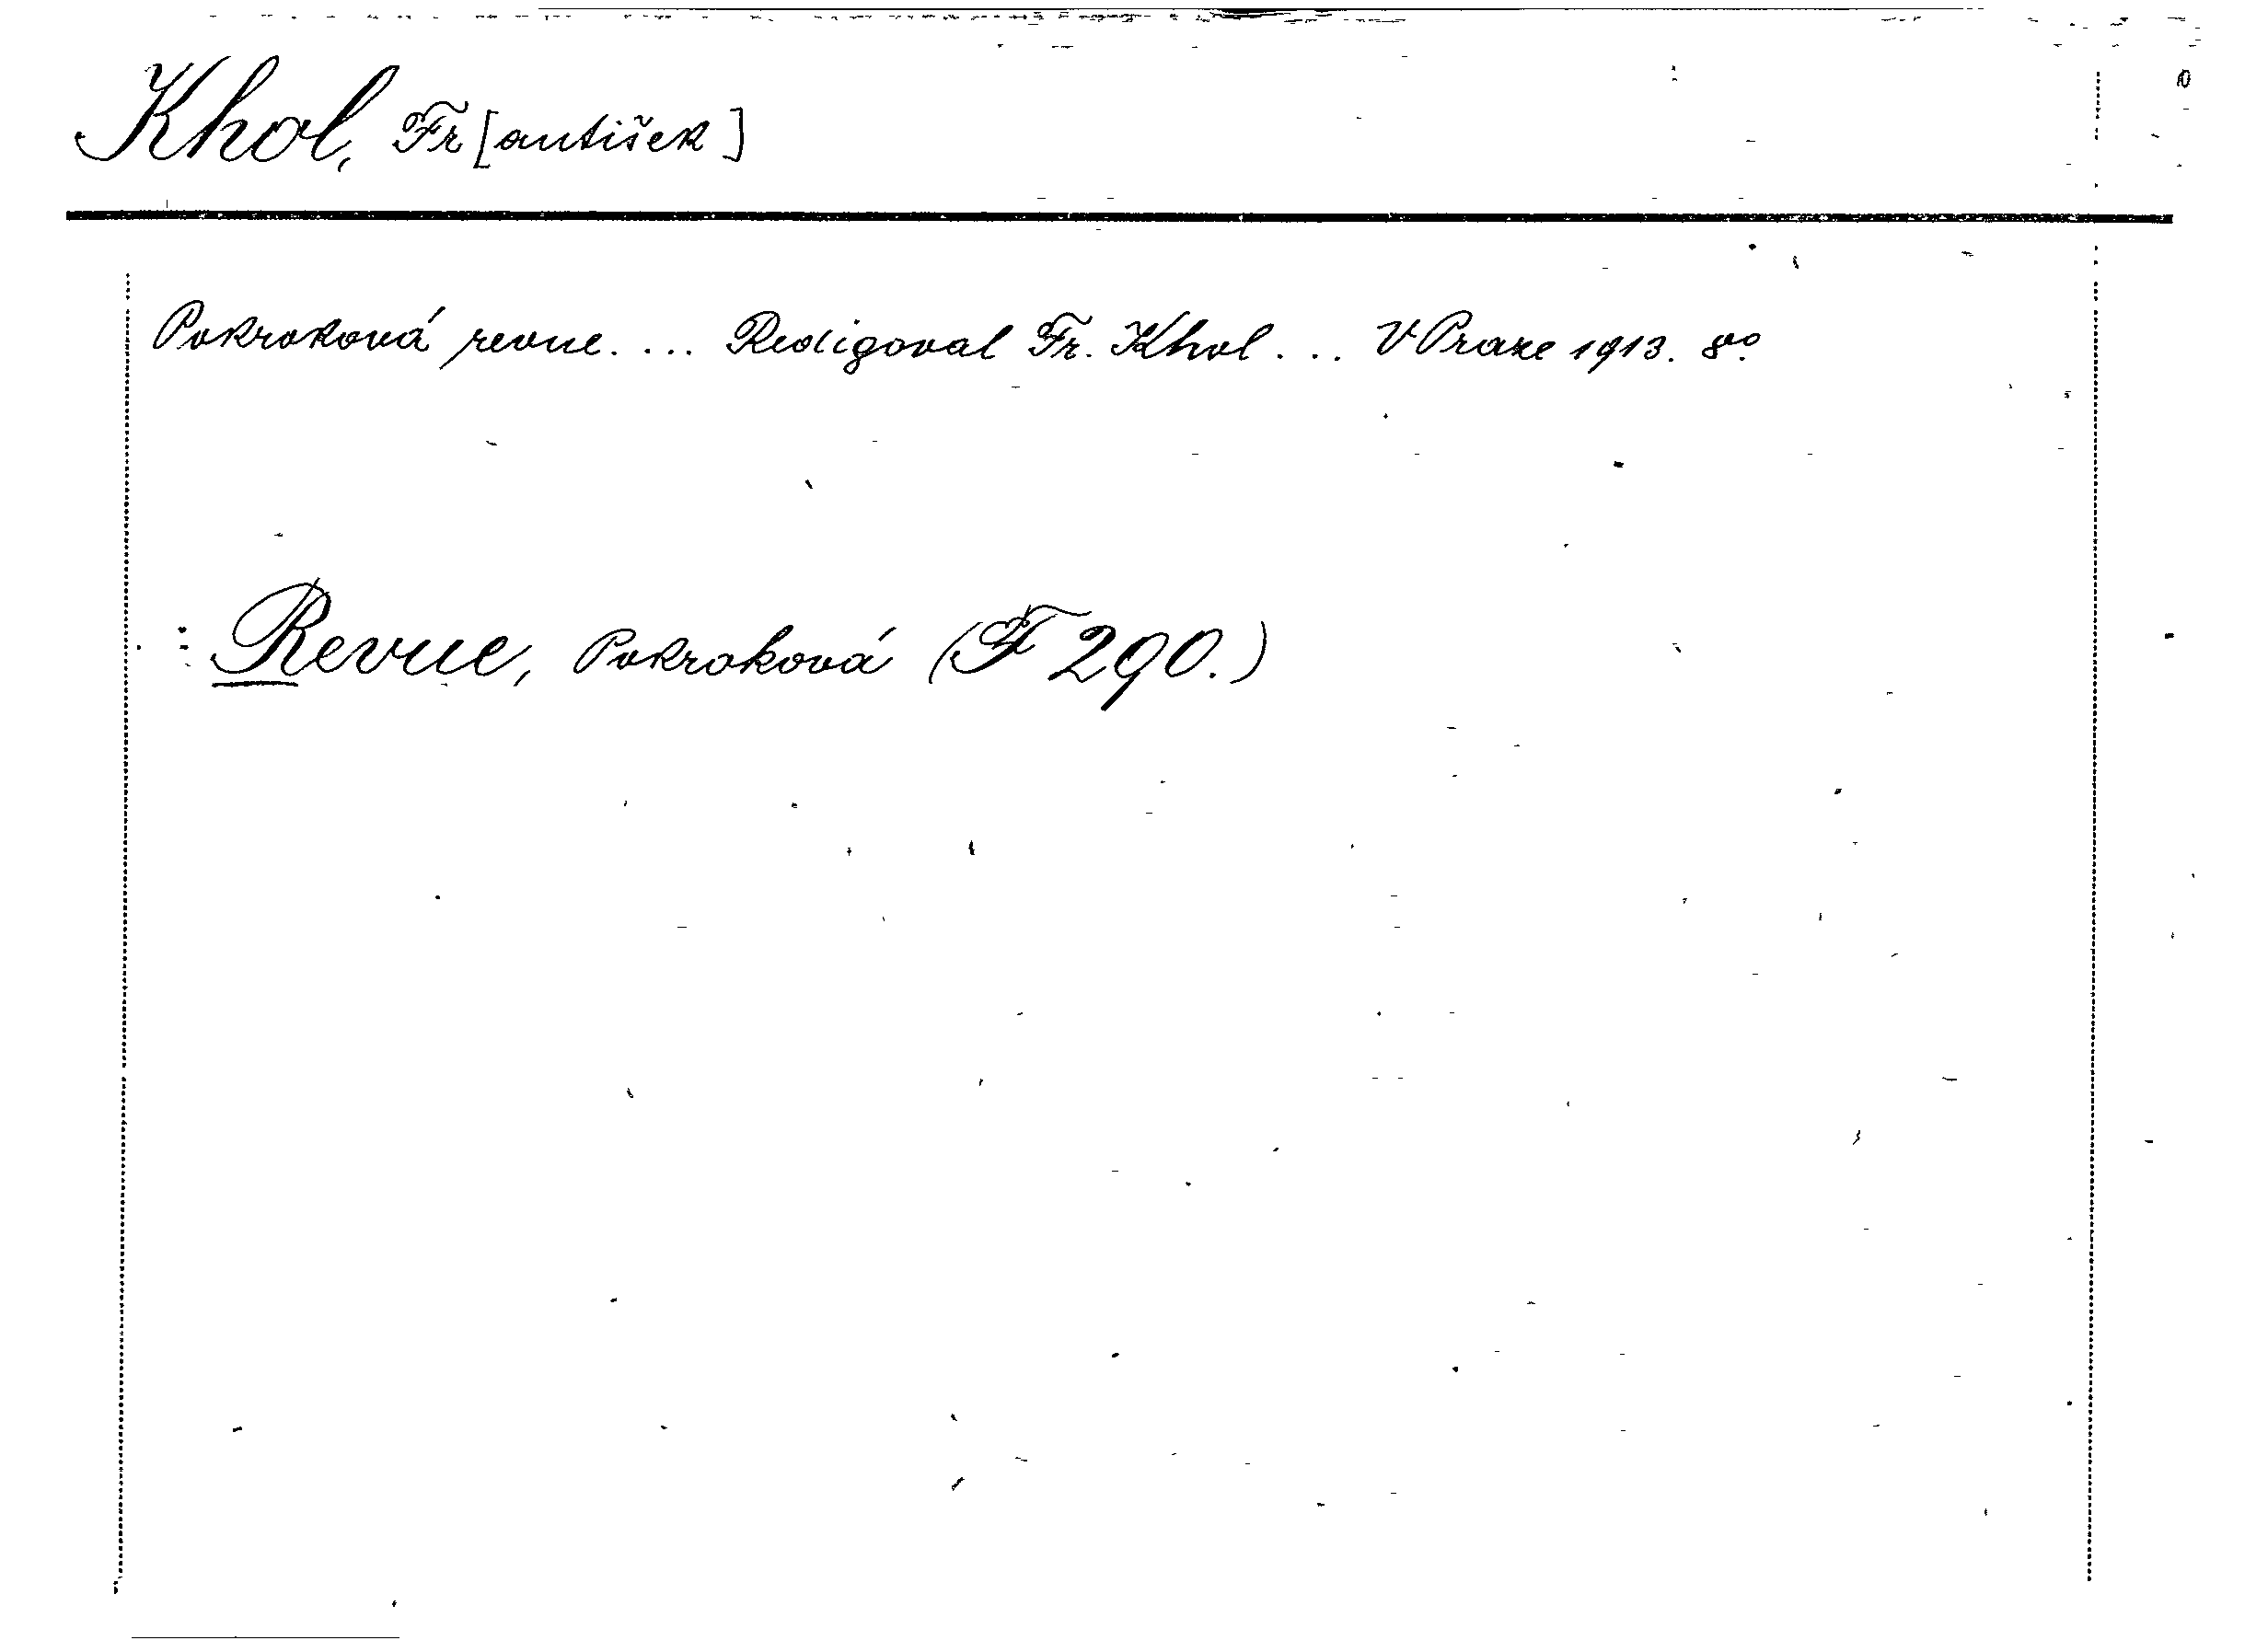 Khol, Fr[antišek]
Pokroková revue. ... Redigoval Fr. Khol ... V Praze 1913. 8º.
: Revue, Pokroková (F 290.)